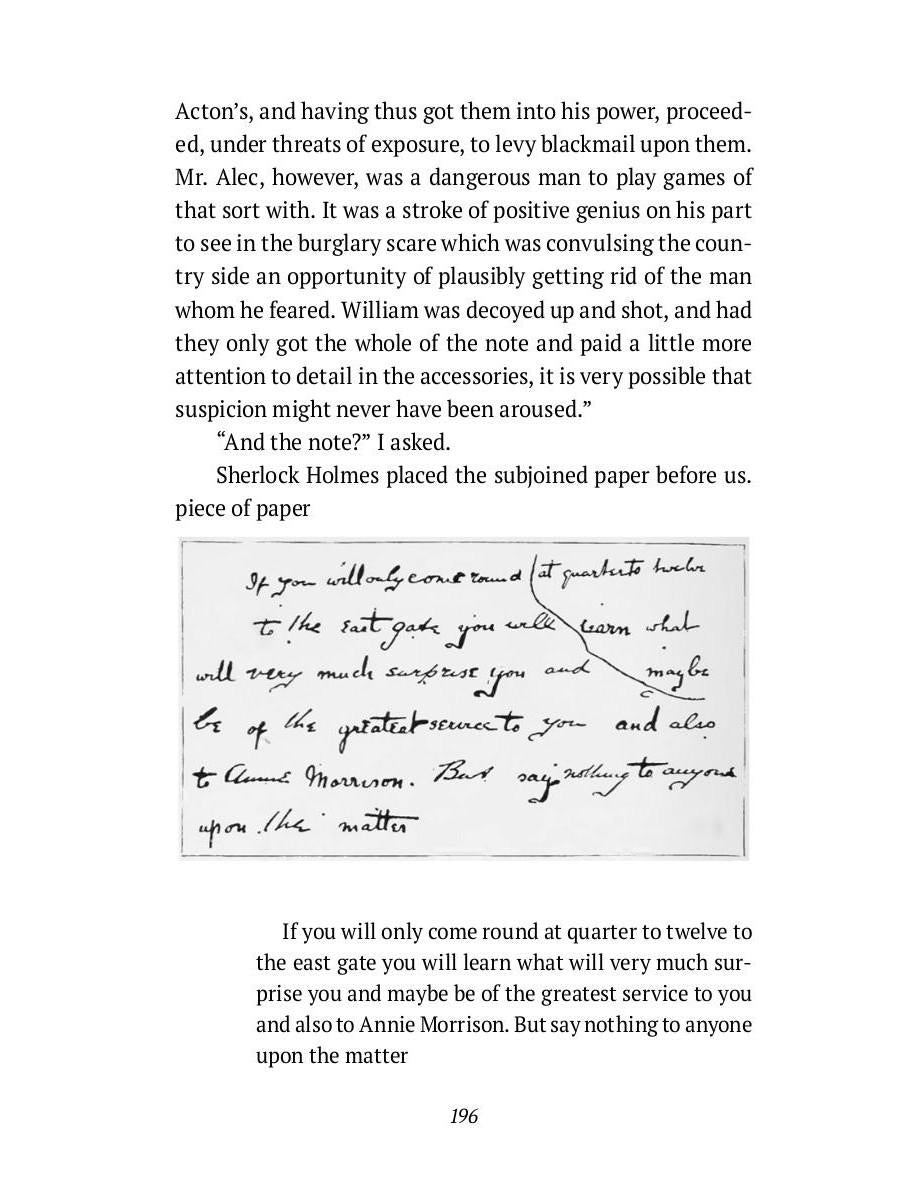 Acton’s, and having thus got them into his power, proceed-
ed, under threats of exposure, to levy blackmail upon them.
Mr. Alec, however, was a dangerous man to play games of
that sort with. It was a stroke of positive genius on his part
to see in the burglary scare which was convulsing the coun-
try side an opportunity of plausibly getting rid of the man
whom he feared. William was decoyed up and shot, and had
they only got the whole of the note and paid a little more
attention to detail in the accessories, it is very possible that
suspicion might never have been aroused.”
“And the note?” I asked.
Sherlock Holmes placed the subjoined paper before us.
piece of paper
If you will only come round at quarter to twelve
to the east gate you will learn what
will very much surprise you and maybe
be of the greatest service to you and also
to Annie Morrison. But say nothing to anyone
upon the matter
If you will only come round at quarter to twelve to
the east gate you will learn what will very much sur-
prise you and maybe be of the greatest service to you
and also to Annie Morrison. But say nothing to anyone
upon the matter
196